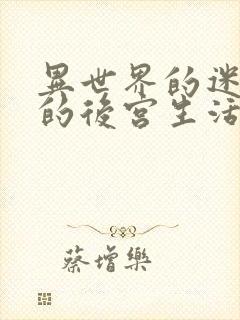 異世界的迷
的後宮生活
蔡增樂